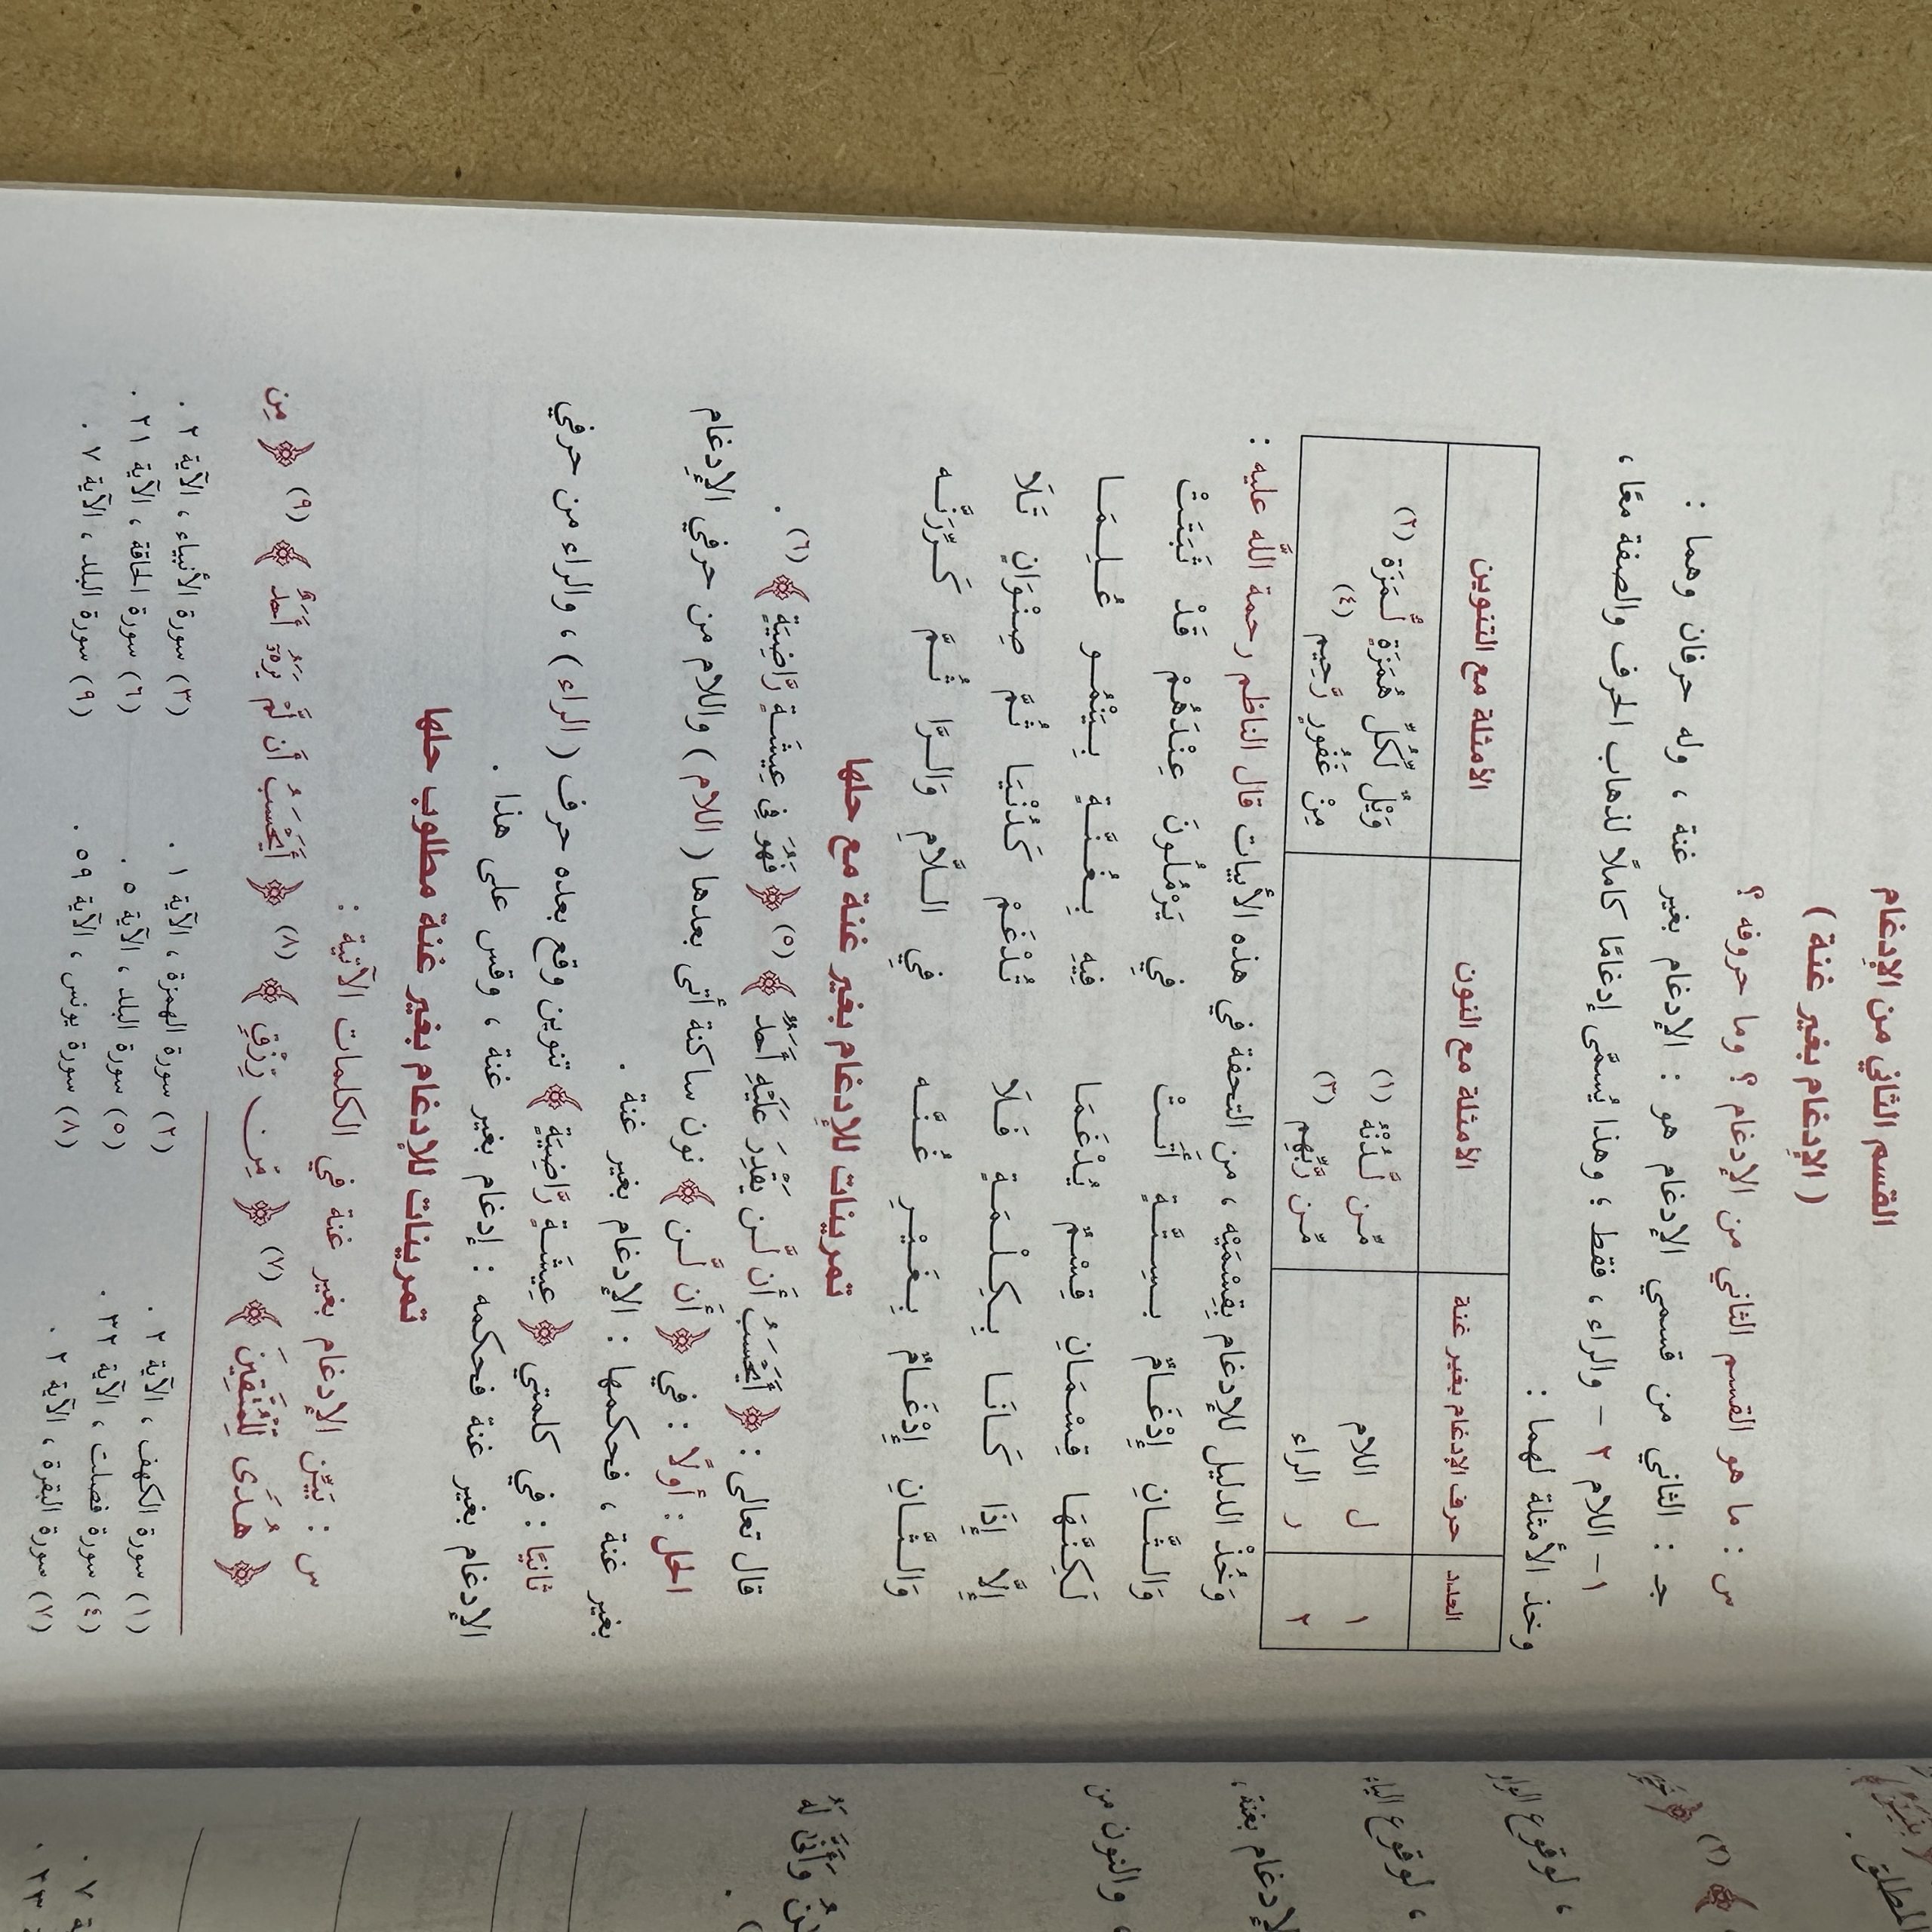 القسم الثاني من الإدغام
( الإدغام بغير غنة )
س : ما هو القسم الثاني من الإدغام ؟ وما حروفه ؟
جـ : الثاني من قسمي الإدغام هو : الإدغام بغير غنة ، وله حرفان وهما :
١ – اللام ٢ – والراء ، فقط ؛ وهذا يُسمَّى إدغامًا كاملًا لذهاب الحرف والصفة معًا ،
وخذ الأمثلة لهما :
العدد حرف الإدغام بغير غنة الأمثلة مع النون الأمثلة مع التنوين
١ ل اللام مِّن لَّدُنْهُ (١) وَيْلٌ لِّكُلِّ هُمَزَةٍ لُّمَزَة (٢)
٢ ر الراء مِّن رَّبِّهِم (٣) مِنْ غَفُورٍ رَّحِيم (٤)
وَخُذْ الدليل للإدغام بِقِسْمَيْه ، من التحفة في هذه الأبيات قال الناظم رحمة اللَّه عليه :
وَالـثَّـانِ إِدْغَـامٌ بِـسِـتَّـةٍ أَتَـتْ في يَرْمُلُونَ عِنْدَهُمْ قَدْ ثَبَتَتْ
لَـكِـنَّـهَـا قِـسْـمَـانِ قِـسْـمٌ يُـدْغَـمَـا فِيهِ بِـغُـنَّـةٍ بِـيَـنْـمُـو عُـلِـمَـا
إِلَّا إِذَا كَـانَـا بِـكِـلْـمَـةٍ فَـلَا تُـدْغَـمْ كَـدُنْـيَـا ثُـمَّ صِـنْـوَانٍ تَـلَا
وَالـثَّـانِ إِدْغَـامٌ بِـغَـيْـرِ غُـنَّـه في الـلَّامِ وَالـرَّا ثُـمَّ كَـرِّرَنَّـه
تمرينات للإدغام بغير غنة مع حلها
قال تعالى : ﴿ أَيَحْسَبُ أَن لَّن يَقْدِرَ عَلَيْهِ أَحَدٌ ﴾ (٥) ﴿ فَهُوَ فِي عِيشَةٍ رَّاضِيَةٍ ﴾ (٦) .
الحل : أولًا : في ﴿ أَن لَّن ﴾ نون ساكنة أتى بعدها ( اللام ) واللام من حرفي الإدغام
بغير غنة ، فحكمها : الإدغام بغير غنة .
ثانيًا : في كلمتي ﴿ عِيشَةٍ رَّاضِيَةٍ ﴾ تنوين وقع بعده حرف ( الراء ) ، والراء من حرفي
الإدغام بغير غنة فحكمه : إدغام بغير غنة ، وقس على هذا .
تمرينات للإدغام بغير غنة مطلوب حلها
س : بَيِّن الإدغام بغير غنة في الكلمات الآتية :
﴿ هُدًى لِّلْمُتَّقِينَ ﴾ (٧) ﴿ مِّن رِّزْقٍ ﴾ (٨) ﴿ أَيَحْسَبُ أَن لَّمْ يَرَهُۥٓ أَحَدٌ ﴾ (٩) ﴿ مِن
(١) سورة الكهف ، الآية ٢ . (٢) سورة الهمزة ، الآية ١ . (٣) سورة الأنبياء ، الآية ٢ .
(٤) سورة فصلت ، الآية ٣٢ . (٥) سورة البلد ، الآية ٥ . (٦) سورة الحاقة ، الآية ٢١ .
(٧) سورة البقرة ، الآية ٢ . (٨) سورة يونس ، الآية ٥٩ . (٩) سورة البلد ، الآية ٧ .
المطلق .
(٢)
، لوقوع الواو
، لوقوع الياء
لإدغام بغنة ،
، والنون من